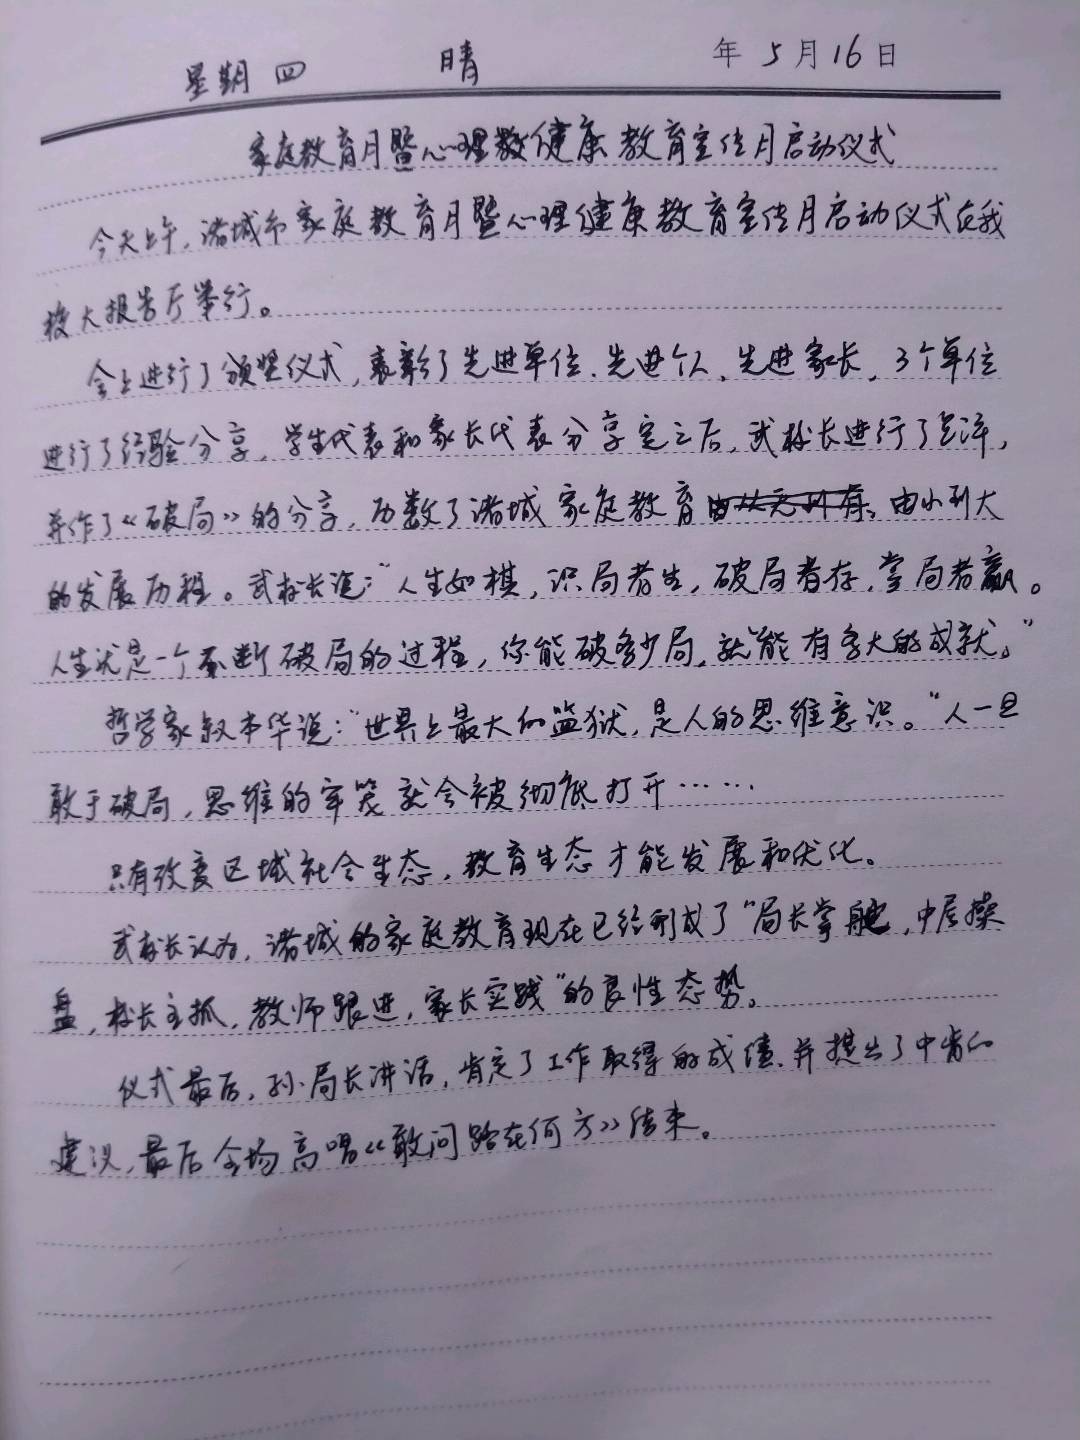 星期四 晴 年5月16日
家庭教育月暨心理教健康教育宣传月启动仪式
今天上午,诸城市家庭教育月暨心理健康教育宣传月启动仪式在我
校大报告厅举行。
会上进行了颁奖仪式,表彰了先进单位、先进个人、先进家长,3个单位
进行了经验分享,学生代表和家长代表分享完之后,武校长进行了点评,
并作了《破局》的分享,历数了诸城家庭教育由从无到有、由小到大
的发展历程。武校长说:“人生如棋,识局者生,破局者存,掌局者赢。
人生就是一个不断破局的过程,你能破多少局,就能有多大的成就。”
哲学家叔本华说:“世界上最大的监狱,是人的思维意识。”人一旦
敢于破局,思维的牢笼就会被彻底打开……
只有改变区域社会生态,教育生态才能发展和优化。
武校长认为,诸城的家庭教育现在已经形成了“局长掌舵,中层操
盘,校长主抓,教师跟进,家长实践”的良性态势。
仪式最后,孙局长讲话,肯定了工作取得的成绩、并提出了中肯的
建议,最后全场高唱《敢问路在何方》结束。